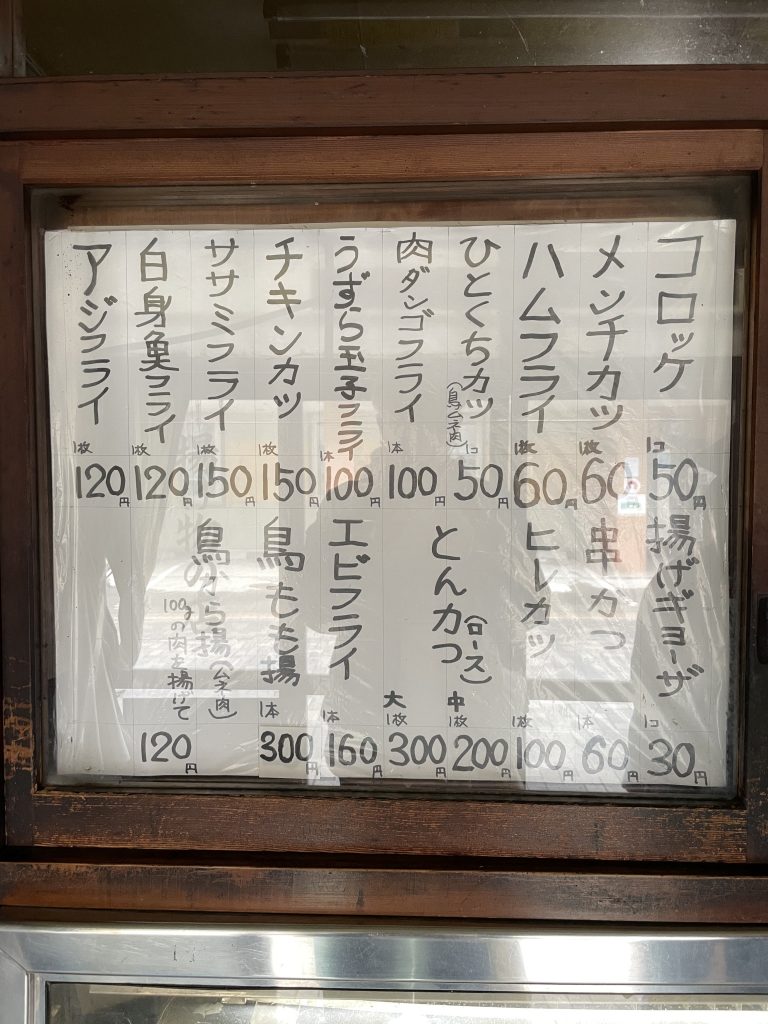 コロッケ
1コ
50円
メンチカツ
1枚
60円
ハムフライ
1枚
60円
ひとくちカツ
(鳥ムネ肉)
1コ
50円
肉ダンゴフライ
1本
100円
うずら玉子フライ
1本
100円
チキンカツ
1枚
150円
ササミフライ
1枚
150円
白身魚フライ
1枚
120円
アジフライ
1枚
120円
揚げギョーザ
1コ
30円
串カツ
1本
60円
ヒレカツ
1枚
100円
とんカつ
(ロース)
中
1枚
200円
大
1枚
300円
エビフライ
1本
160円
鳥もも揚
1本
300円
鳥のから揚(ムネ肉)
100gの肉を揚げて
120円